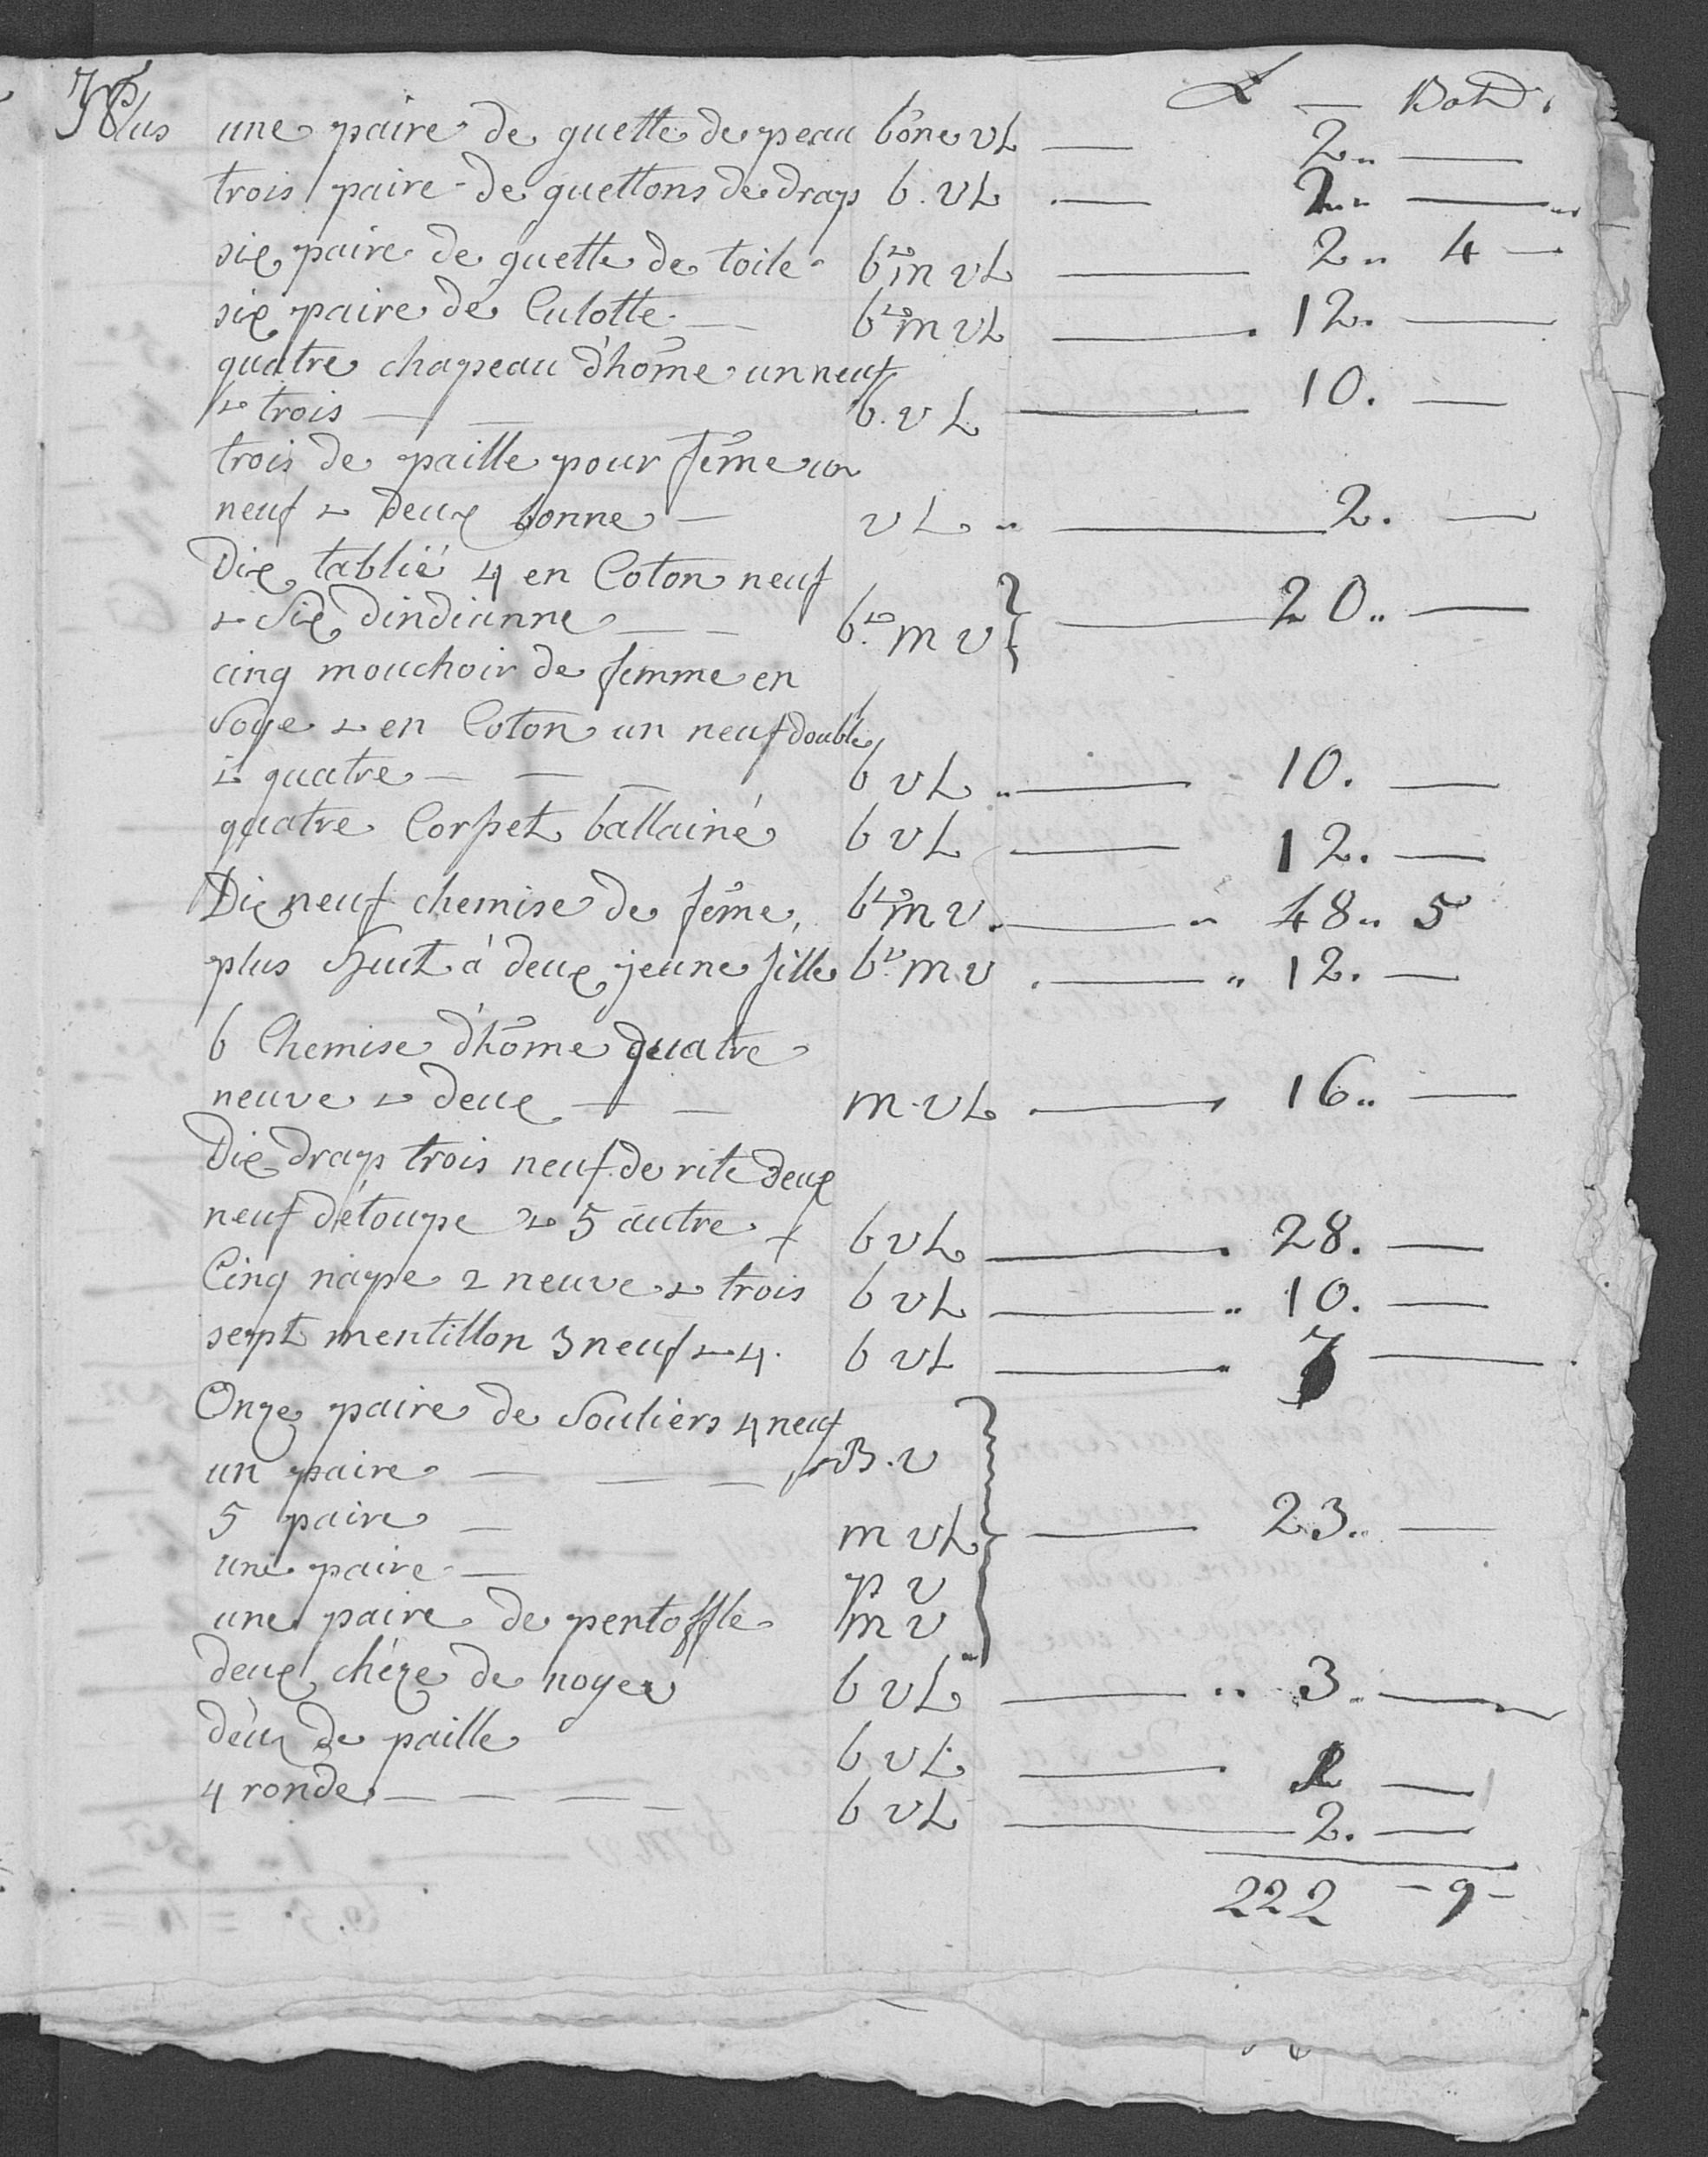 L — Batz
Plus une paire de guette de peau bône vL — 2.. —
trois paire de guettons de drap b. vL — 2.. —
six paire de guette de toile b & m vL — 2.. 4 —
six paire de Culotte — b & m vL — 12. —
quatre chapeau d'hom̃e un neuf
& trois — — b. v L — 10. —
trois de paille pour fem̃e un
neuf & deux bonne — v L .. — 2. —
Dix tablié 4 en Coton neuf
& Six dindianne — — b & m v } — 20.. —
cinq mouchoir de femme en
Soye & en Coton un neuf double
& quatre — — — b v L .. — 10. —
quatre Corset ballainé b v L — 12. —
Dix neuf chemise de fem̃e, b & m v. — .. 48.. 5
plus huit à deux jeune fille b & m v . — .. 12. —
6 Chemise d'hom̃e quatre
neuve & deux — — m. vL — 16.. —
Dix drap trois neuf de rite deux
neuf d'étoupe & 5 autre b v L — . 28. —
Cinq nape 2 neuve & trois b v L — .. 10. —
sept mentillon 3 neuf & 4. b vL — .. 7 —
Onze paire de Souliers 4 neuf
un paire — — — B. v
5 paire — m vL } — 23.. —
une paire — p v
une paire de pentoffle m v
deux chéze de noyer b vL — .. 3.. —
deux de paille b v L — . 1 —
4 ronde — — — — b v L — 2. —
222 — 9 —